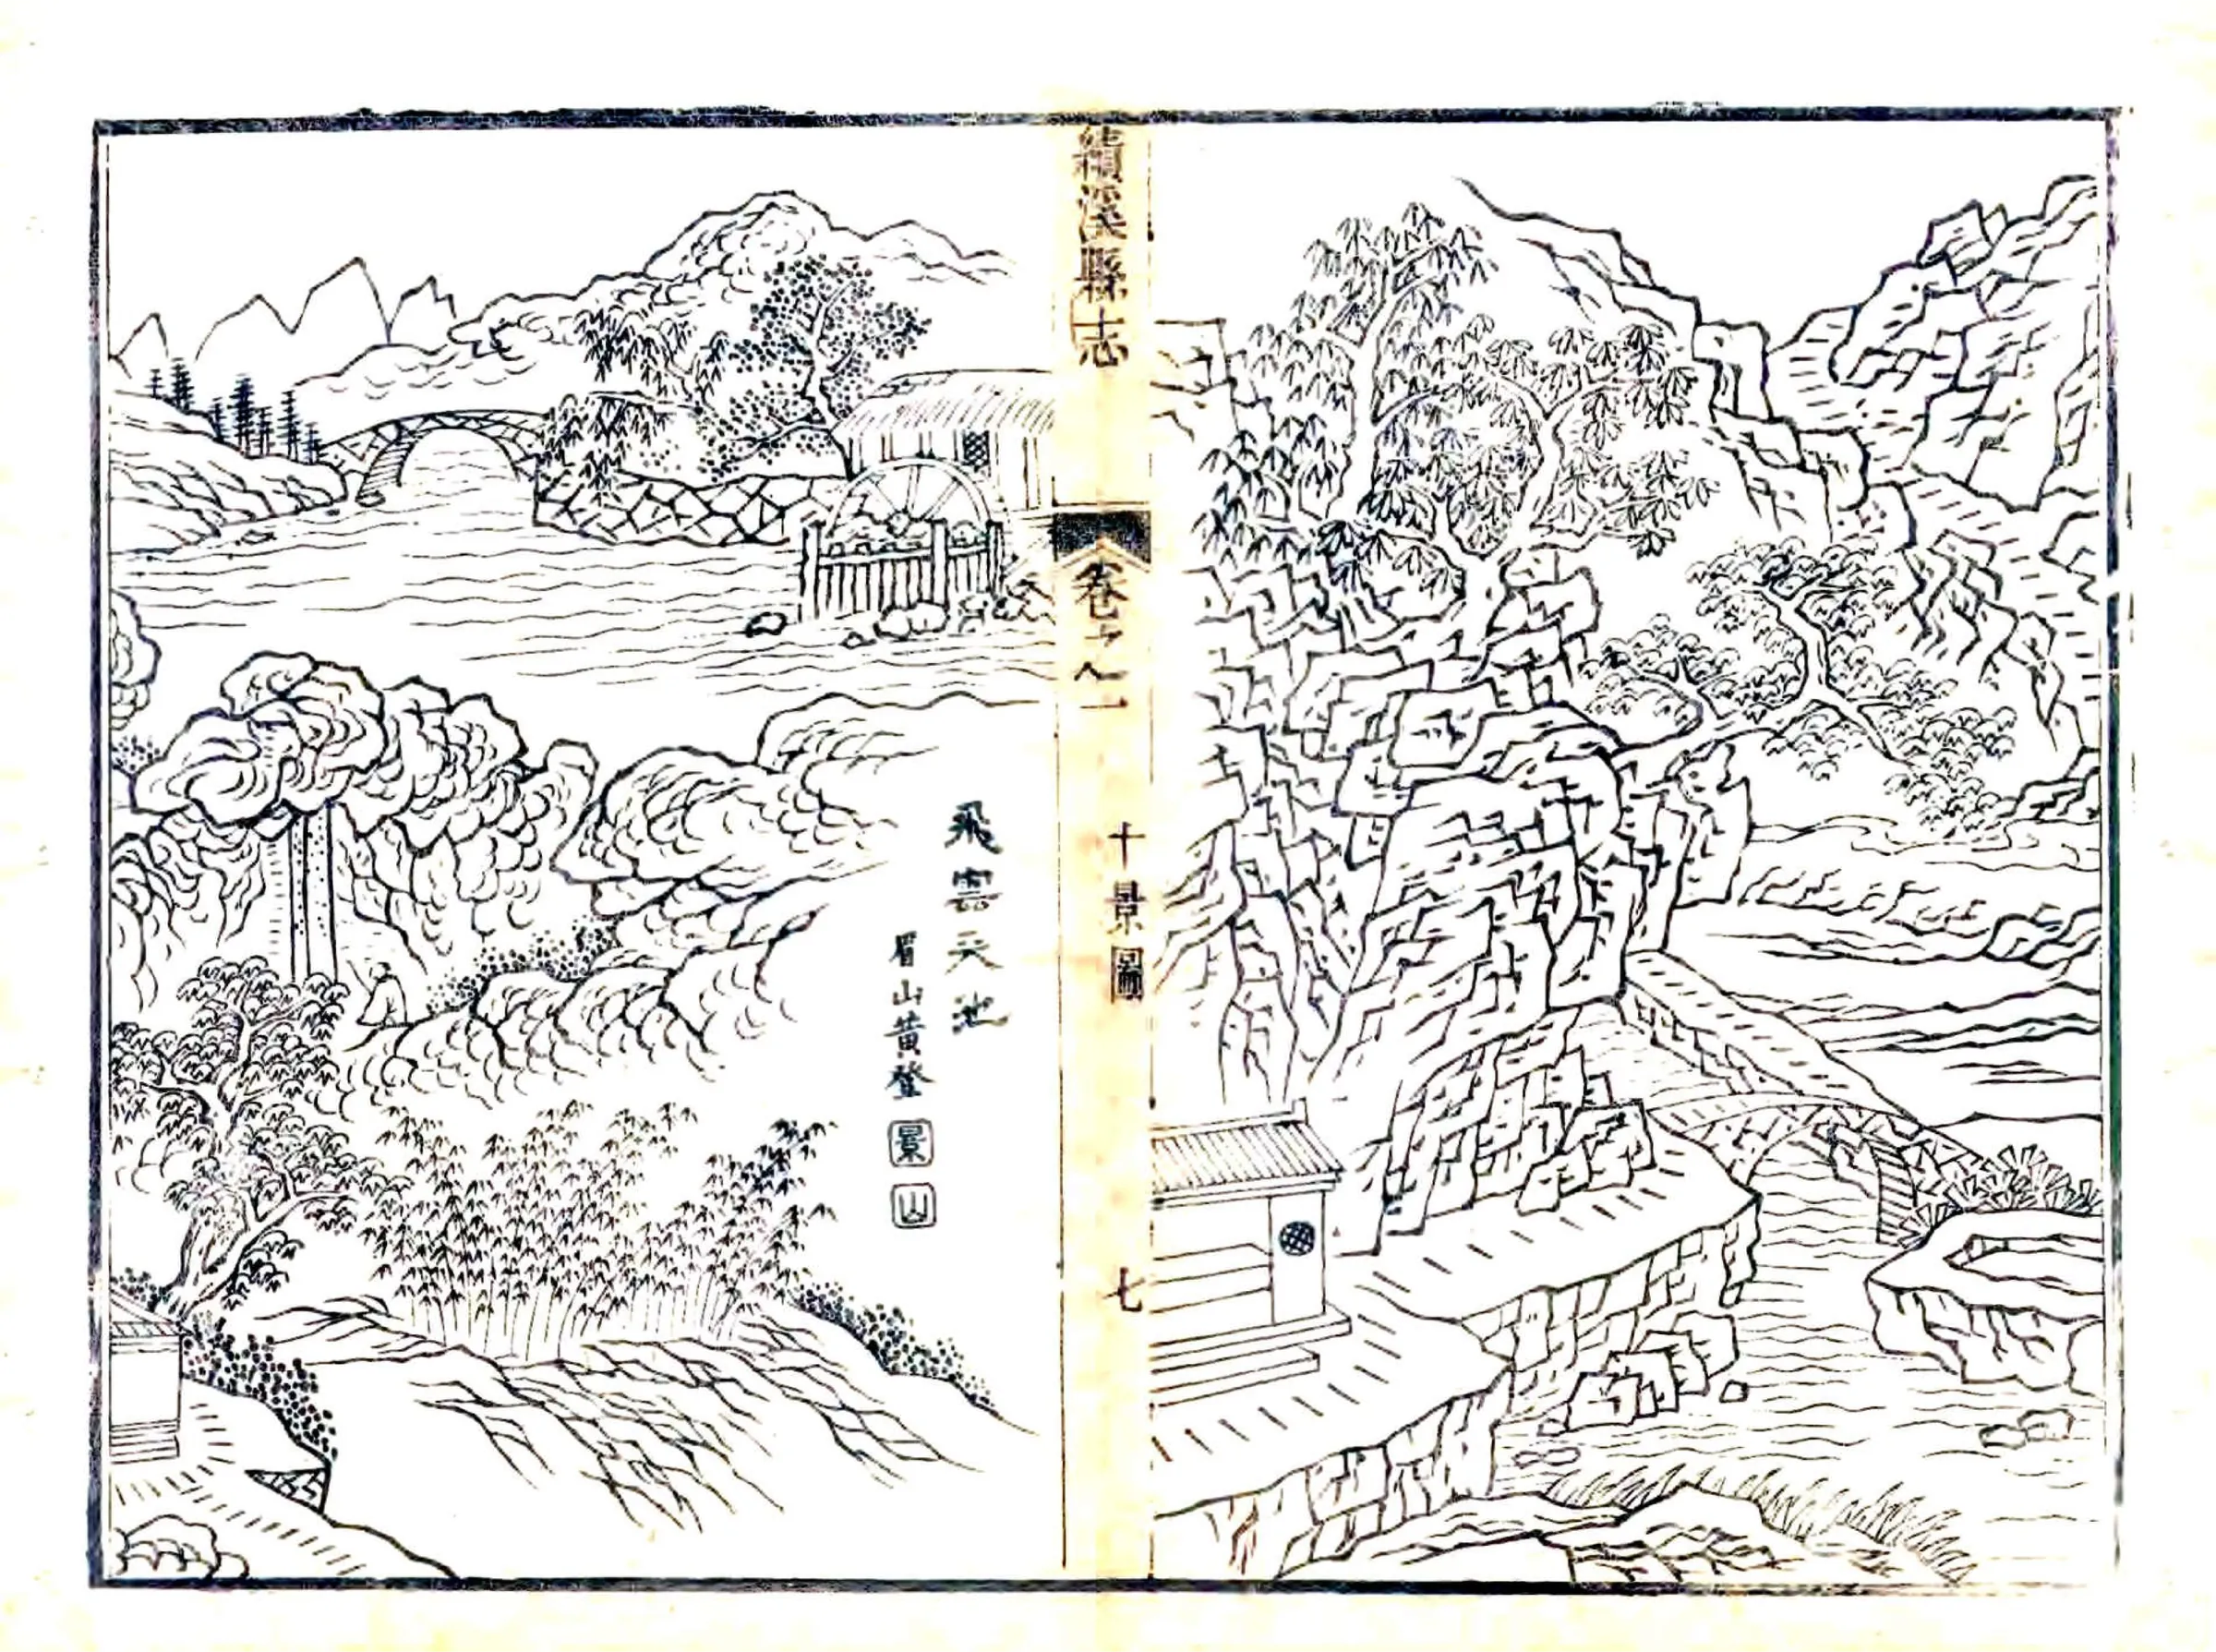 績溪縣志
卷之一
十景圖
七
飛雲天池
眉山黃登
景
山